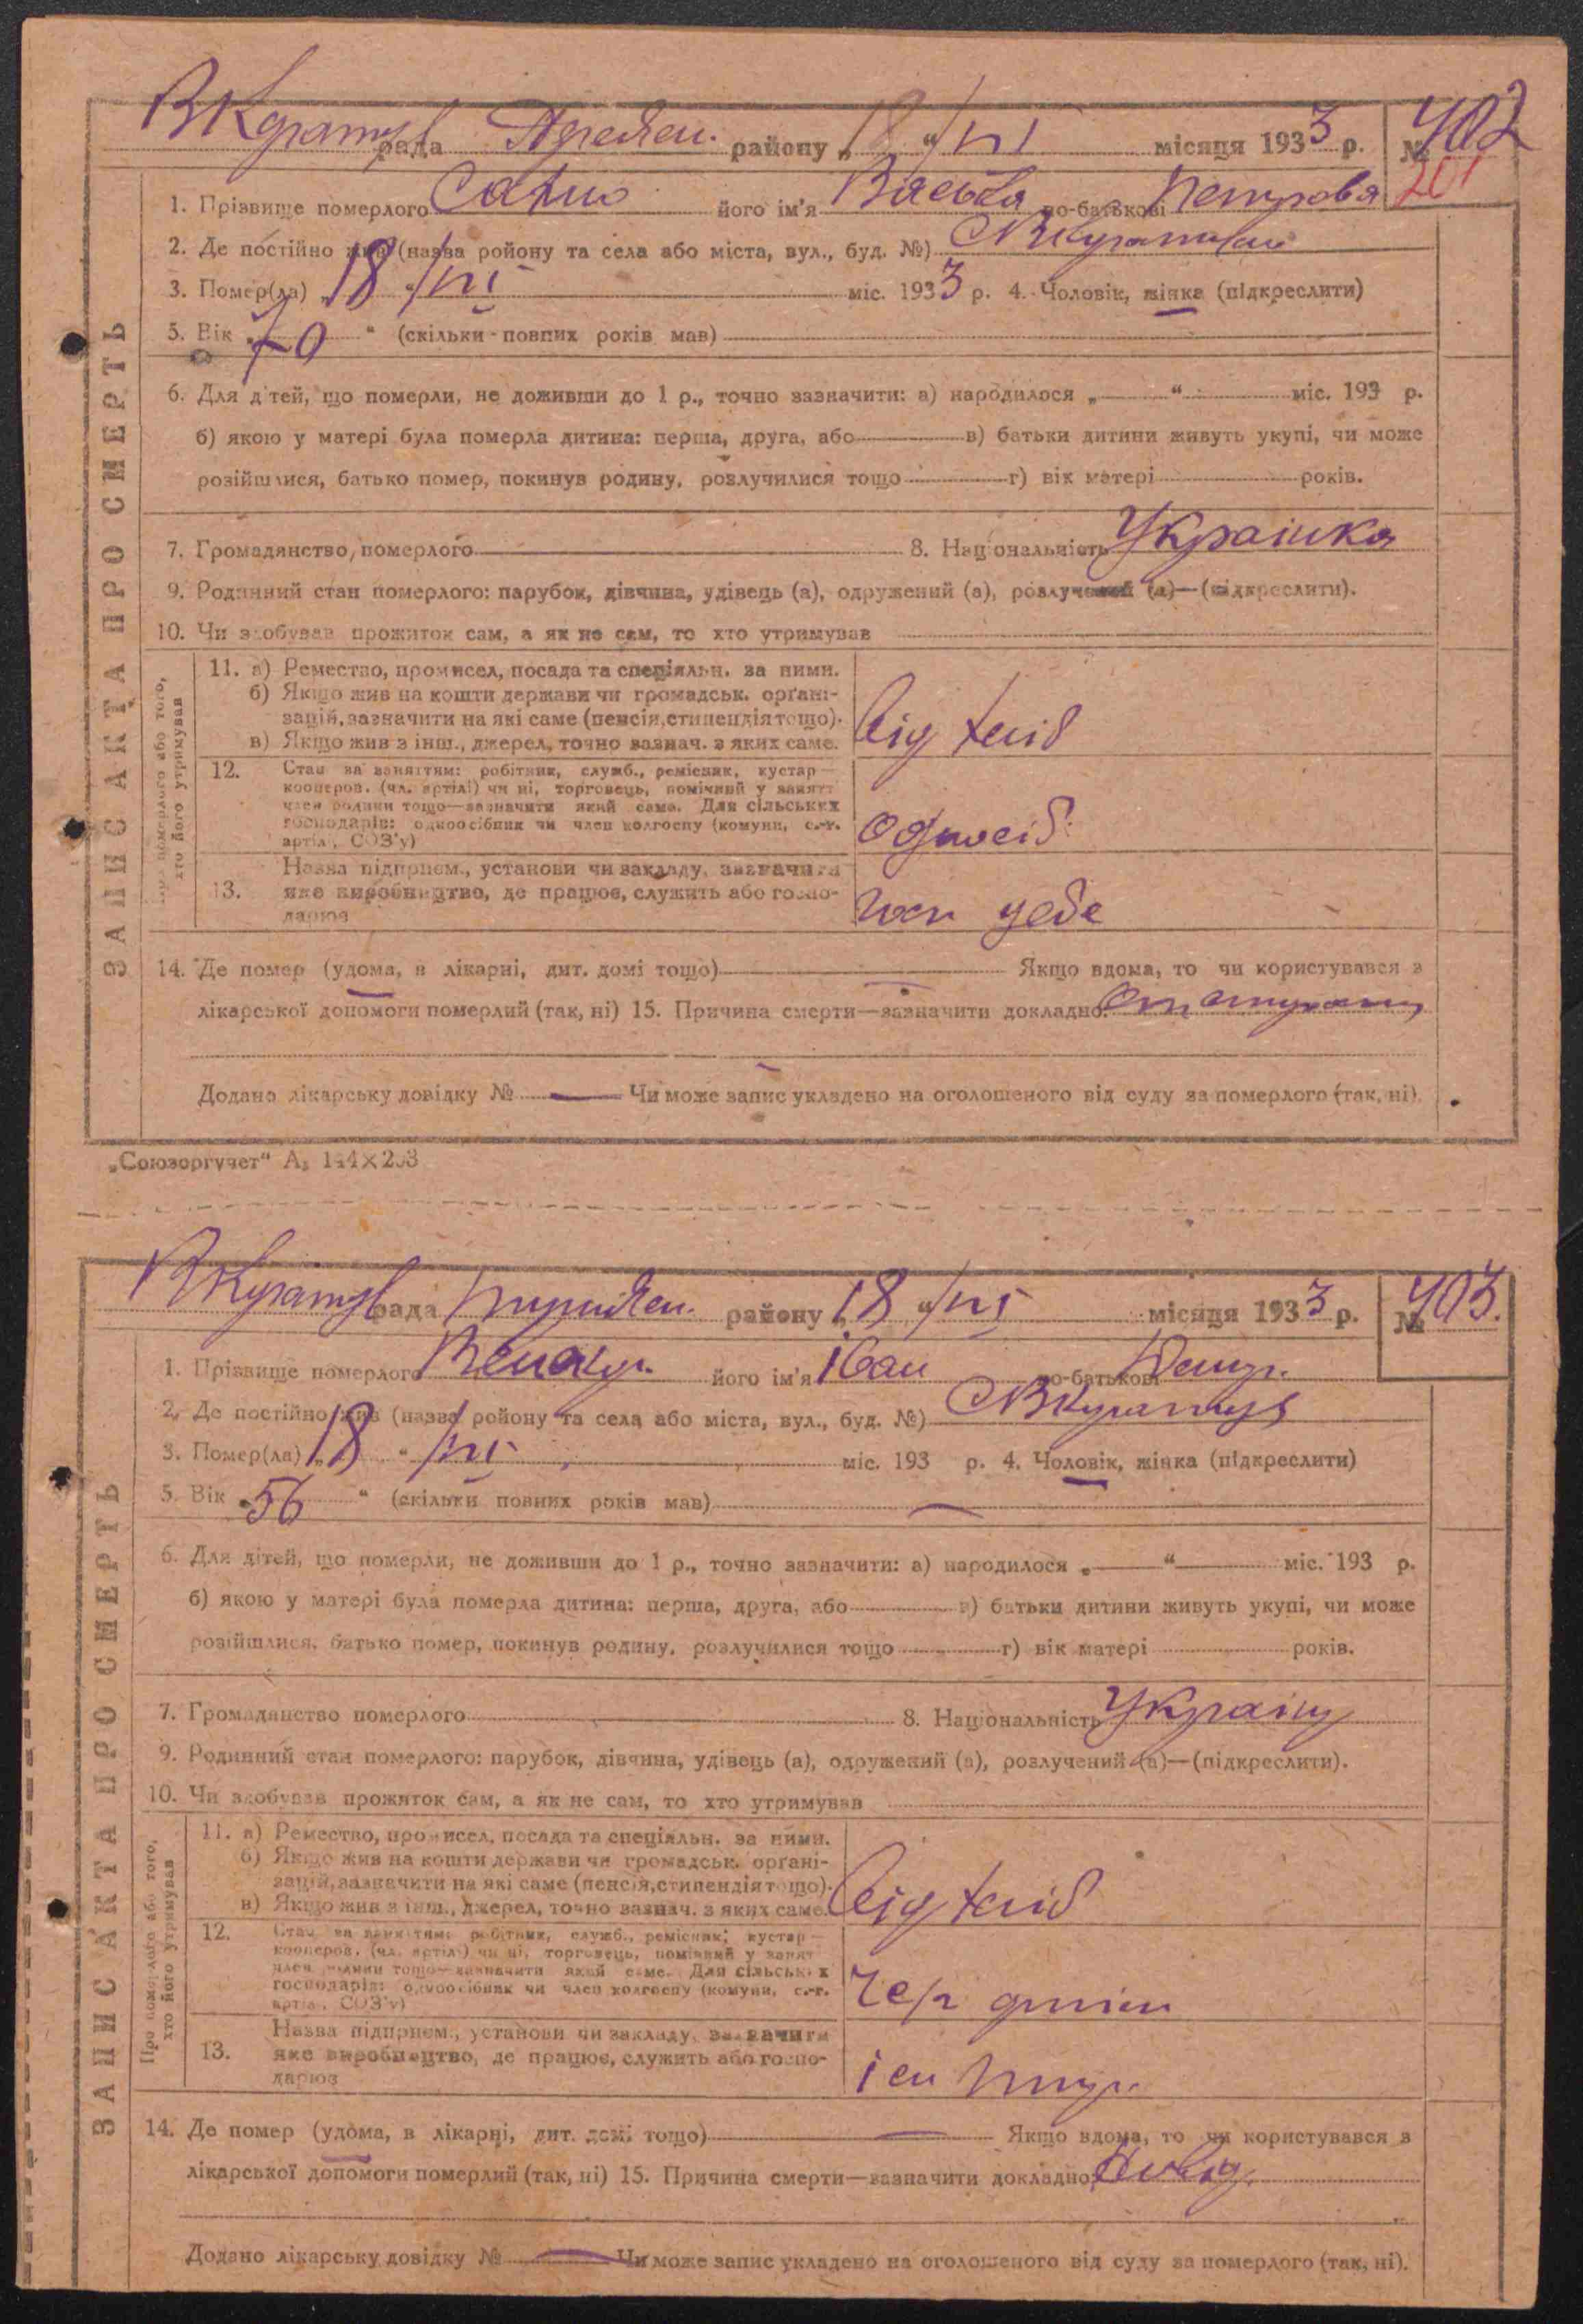 рада району „18“/VI місяця 1933 р. № 402
201
1. Прізвище померлого його ім'я по-батькові Петровя
2. Де постійно жив (назва ройону та села або міста, вул., буд. №)
3. Помер(ла) „18“/VI міс. 1933 р. 4. Чоловік, жінка (підкреслити)
5. Вік „70“ (скільки повних років мав)
6. Для дітей, що померли, не доживши до 1 р., точно зазначити: а) народилося „ “ міс. 193 р.
б) якою у матері була померла дитина: перша, друга, або в) батьки дитини живуть укупі, чи може
розійшлися, батько помер, покинув родину, розлучилися тощо г) вік матері років.
7. Громадянство померлого 8. Національність Українка
9. Родинний стан померлого: парубок, дівчина, удівець (а), одружений (а), розлучений (а)—(підкреслити).
10. Чи здобував прожиток сам, а як не сам, то хто утримував
ЗАПИС АКТА ПРО СМЕРТЬ
Про померлого або того,
хто його утримував
11. а) Ремество, промисел, посада та спеціяльн. за ними.
б) Якщо жив на кошти держави чи громадськ. орґані-
зацій, зазначити на які саме (пенсія, стипендія тощо).
в) Якщо жив з інш., джерел, точно зазнач. з яких саме.
12. Стан за заняттям: робітник, служб., ремісник, кустар—
кооперов. (чл. артілі) чи ні, торговець, помічний у занятт
член родини тощо—зазначити який саме. Для сільських
господарів: одноосібник чи член колгоспу (комуни, с.-г.
артілі, СОЗ'у)
Одноосіб
Назва підприєм., установи чи закладу, зазначити
13. яке виробництво, де працює, служить або госпо-
дарює
14. Де помер (удома, в лікарні, дит. домі тощо) Якщо вдома, то чи користувався з
лікарської допомоги померлий (так, ні) 15. Причина смерти—зазначити докладно:
Додано лікарську довідку № Чи може запис укладено на оголошеного від суду за померлого (так, ні).
„Союзоргучет“ А₅ 144×203
рада району „18“/VI місяця 1933 р. № 403.
1. Прізвище померлого його ім'я Іван по-батькові
2. Де постійно жив (назва ройону та села або міста, вул., буд. №)
3. Помер(ла) „18“/VI міс. 193 р. 4. Чоловік, жінка (підкреслити)
5. Вік „56“ (скільки повних років мав)
6. Для дітей, що померли, не доживши до 1 р., точно зазначити: а) народилося „ “ міс. 193 р.
б) якою у матері була померла дитина: перша, друга, або в) батьки дитини живуть укупі, чи може
розійшлися, батько помер, покинув родину, розлучилися тощо г) вік матері років.
7. Громадянство померлого 8. Національність Україну
9. Родинний стан померлого: парубок, дівчина, удівець (а), одружений (а), розлучений (а)—(підкреслити).
10. Чи здобував прожиток сам, а як не сам, то хто утримував
ЗАПИС АКТА ПРО СМЕРТЬ
Про померлого або того,
хто його утримував
11. а) Ремество, промисел, посада та спеціяльн. за ними.
б) Якщо жив на кошти держави чи громадськ. орґані-
зацій, зазначити на які саме (пенсія, стипендія тощо).
в) Якщо жив з інш., джерел, точно зазнач. з яких саме.
12. Стан за заняттям: робітник, служб., ремісник, кустар—
кооперов. (чл. артілі) чи ні, торговець, помічний у занят
член родини тощо—зазначити який саме. Для сільських
господарів: одноосібник чи член колгоспу (комуни, с.-г.
артілі, СОЗ'у)
Назва підприєм., установи чи закладу, зазначити
13. яке виробництво, де працює, служить або госпо-
дарює
14. Де помер (удома, в лікарні, дит. домі тощо) Якщо вдома, то чи користувався з
лікарської допомоги померлий (так, ні) 15. Причина смерти—зазначити докладно:
Додано лікарську довідку № Чи може запис укладено на оголошеного від суду за померлого (так, ні).